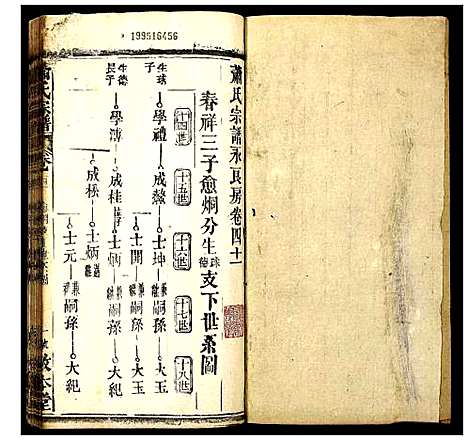 199516456
蕭氏宗譜永良房卷四十一
春祥三子愈烱分生球德支下世系圖
十四世
十五世
十六世
十七世
十八世
生球子
學禮
成
士坤
兼嗣孫
大玉
士開
兼嗣孫
大玉
生德長子
學溥
成桂
士炳
兼嗣孫
大紀
成松
士炳
士元
兼嗣孫
大紀
蕭氏宗譜
敘本堂